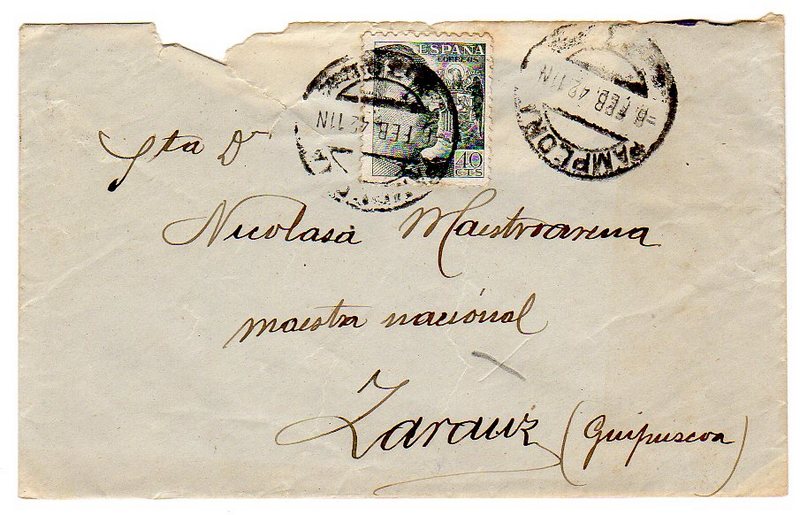 ESPAÑA
CORREOS
40
CTS
PAMPLONA
-6.FEB.42.11N
6.FEB.42.11N
Sta Dª
Nicolasa Maestroarena
maestra naciónal
Zarauz (Guipuscoa)